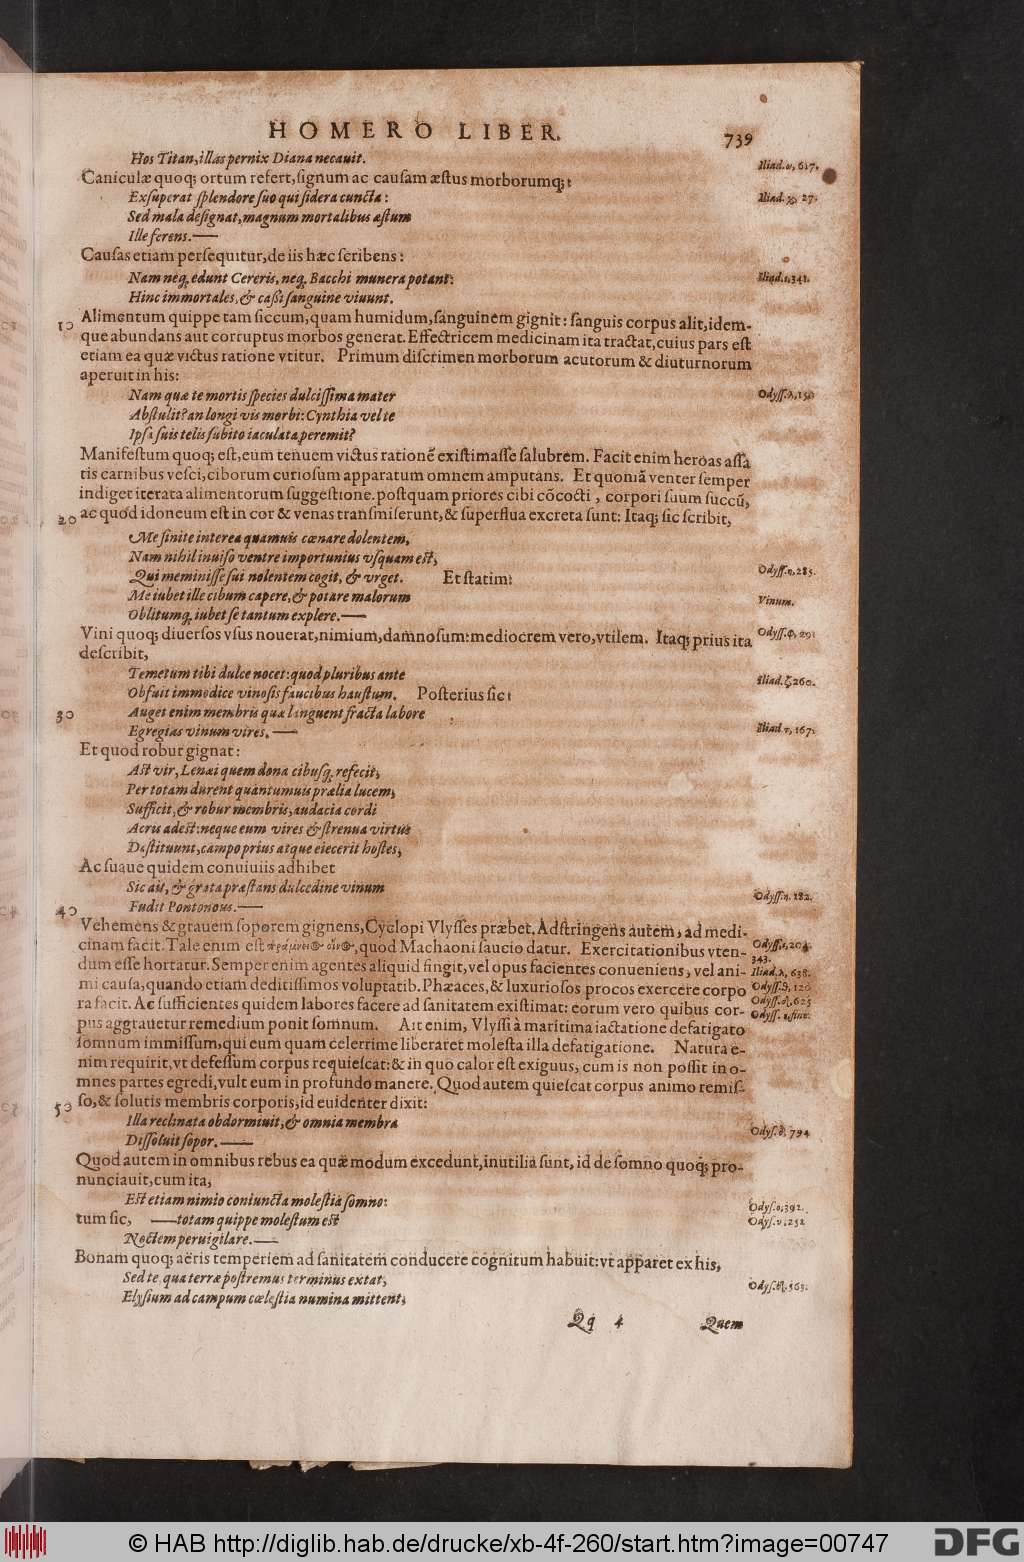 HOMERO LIBER.
739
Hos Titan, illas pernix Diana necauit.
Iliad.ω, 617.
Caniculæ quoq; ortum refert, signum ac causam æstus morborumq;:
Exsuperat splendore suo qui sidera cuncta:
Iliad.χ, 27.
Sed mala designat, magnum mortalibus æstum
Ille ferens.—
Causas etiam persequitur, de iis hæc scribens:
Nam neq; edunt Cereris, neq; Bacchi munera potant:
Iliad.ε, 341.
Hinc immortales, & cassi sanguine viuunt.
10 Alimentum quippe tam siccum, quam humidum, sanguinem gignit: sanguis corpus alit, idem-
que abundans aut corruptus morbos generat. Effectricem medicinam ita tractat, cuius pars est
etiam ea quæ victus ratione vtitur. Primum discrimen morborum acutorum & diuturnorum
aperuit in his:
Nam quæ te mortis species dulcissima mater
Odyss.λ, 150
Abstulit? an longi vis morbi: Cynthia vel te
Ipsa suis telis subito iaculata peremit?
Manifestum quoq; est, eum tenuem victus rationē existimasse salubrem. Facit enim heroas assa
tis carnibus vesci, ciborum curiosum apparatum omnem amputans. Et quoniā venter semper
indiget iterata alimentorum suggestione. postquam priores cibi cōcocti, corpori suum succū,
20 ac quod idoneum est in cor & venas transmiserunt, & superflua excreta sunt: Itaq; sic scribit,
Me sinite interea quamuis cœnare dolentem,
Nam nihil inuiso ventre importunius vsquam est,
Qui meminisse sui nolentem cogit, & vrget. Et statim:
Odyss.η, 285.
Me iubet ille cibum capere, & potare malorum
Vinum.
Oblitumq; iubet se tantum explere.—
Vini quoq; diuersos vsus nouerat, nimium, damnosum: mediocrem vero, vtilem. Itaq; prius ita
Odyss.φ, 291
describit,
Temetum tibi dulce nocet: quod pluribus ante
Iliad.ζ, 260.
Obfuit immodice vinosis faucibus haustum. Posterius sic:
30 Auget enim membris quæ linguent fracta labore
Egregias vinum vires.—
Iliad τ, 167.
Et quod robur gignat:
Ast vir, Lenæi quem dona cibusq; refecit,
Per totam durent quantumuis prælia lucem,
Sufficit, & robur membris, audacia cordi
Acris adest: neque eum vires & strenua virtus
Destituunt, campo prius atque eiecerit hostes,
Ac suaue quidem conuiuiis adhibet
Sic ait, & grata præstans dulcedine vinum
Odyss.η. 182.
40 Fudit Pontonous.—
Vehemens & grauem soporem gignens, Cyclopi Vlysses præbet. Adstringens autem, ad medi-
cinam facit. Tale enim est πράμνειος οἶνος, quod Machaoni saucio datur. Exercitationibus vten-
Odyss.ι, 204.
343.
dum esse hortatur. Semper enim agentes aliquid fingit, vel opus facientes conueniens, vel ani-
Iliad.λ, 638.
mi causa, quando etiam deditissimos voluptatib. Phæaces, & luxuriosos procos exercere corpo
Odyss.θ, 120
ra facit. Ac sufficientes quidem labores facere ad sanitatem existimat: eorum vero quibus cor-
Odyss.δ, 625
pus aggrauetur remedium ponit somnum. Ait enim, Vlyssi à maritima iactatione defatigato
Odyss. ε, fine.
somnum immissum, qui eum quam celerrime liberaret molesta illa defatigatione. Natura e-
nim requirit, vt defessum corpus requiescat: & in quo calor est exiguus, cum is non possit in o-
mnes partes egredi, vult eum in profundo manere. Quod autem quiescat corpus animo remis-
50 so, & solutis membris corporis, id euidenter dixit:
Illa reclinata obdormiuit, & omnia membra
Dissoluit sopor.—
Odyss.δ, 794
Quod autem in omnibus rebus ea quæ modum excedunt, inutilia sunt, id de somno quoq; pro-
nunciauit, cum ita,
Est etiam nimio coniuncta molestia somno:
Odys.ο, 392.
tum sic, —totam quippe molestum est
Odys.υ, 252
Noctem peruigilare.—
Bonam quoq; aëris temperiem ad sanitatem conducere cognitum habuit: vt apparet ex his,
Sed te qua terræ postremus terminus extat,
Odys.δ, 563.
Elysium ad campum cælestia numina mittent,
Qq 4
Quem
© HAB http://diglib.hab.de/drucke/xb-4f-260/start.htm?image=00747
DFG